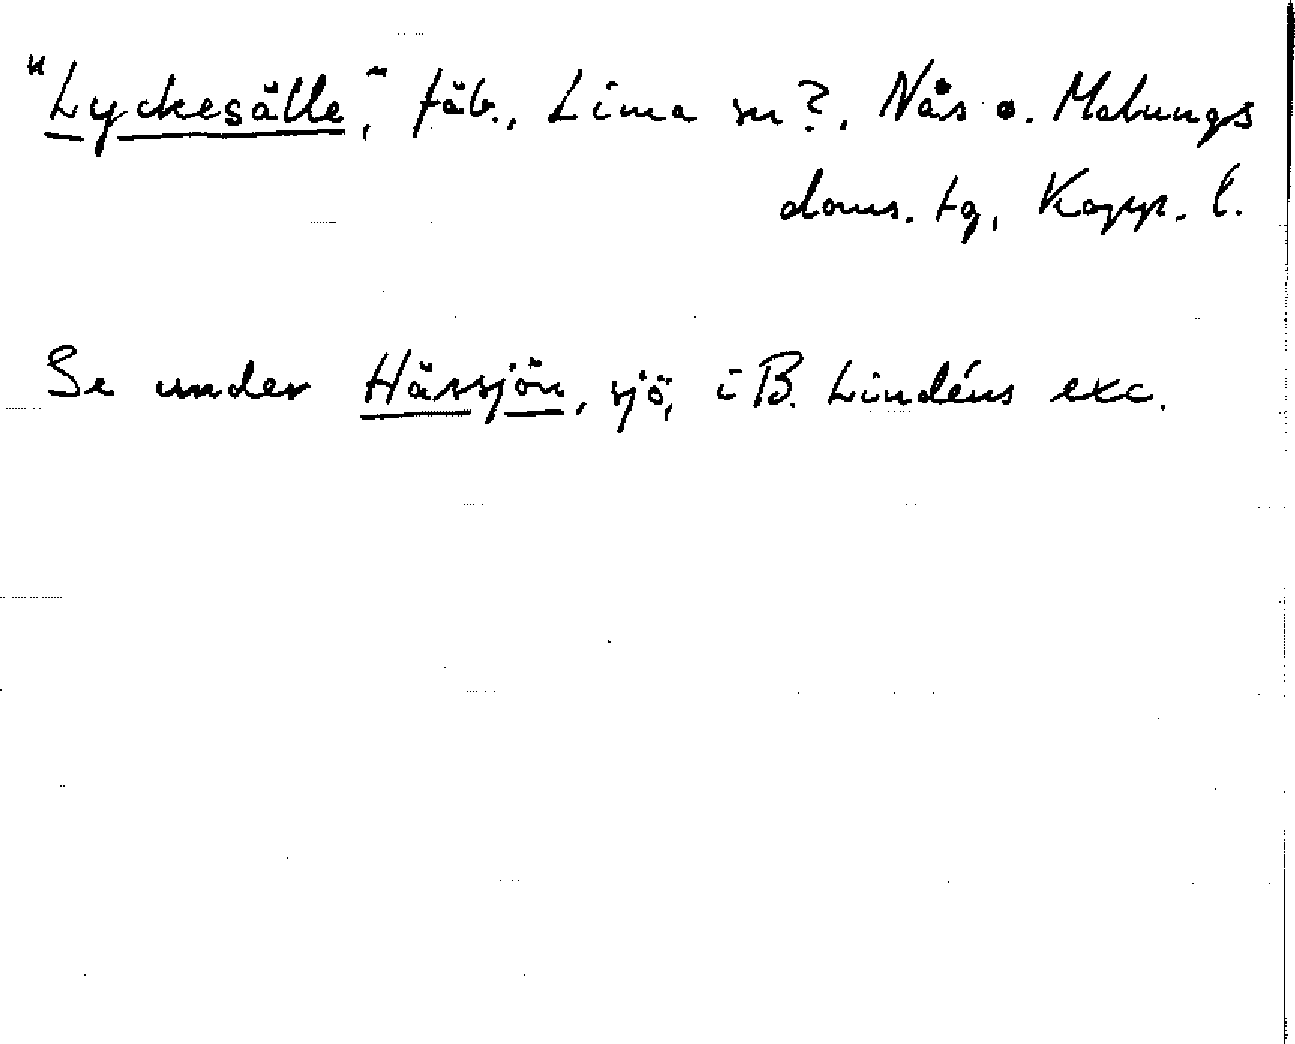 "Lyckesälle", fäb., Lima sn?. Nås o. Malungs
doms. tg, Kopp. l.
Se under Hässjön, sjö, i B. Lindéns exc.